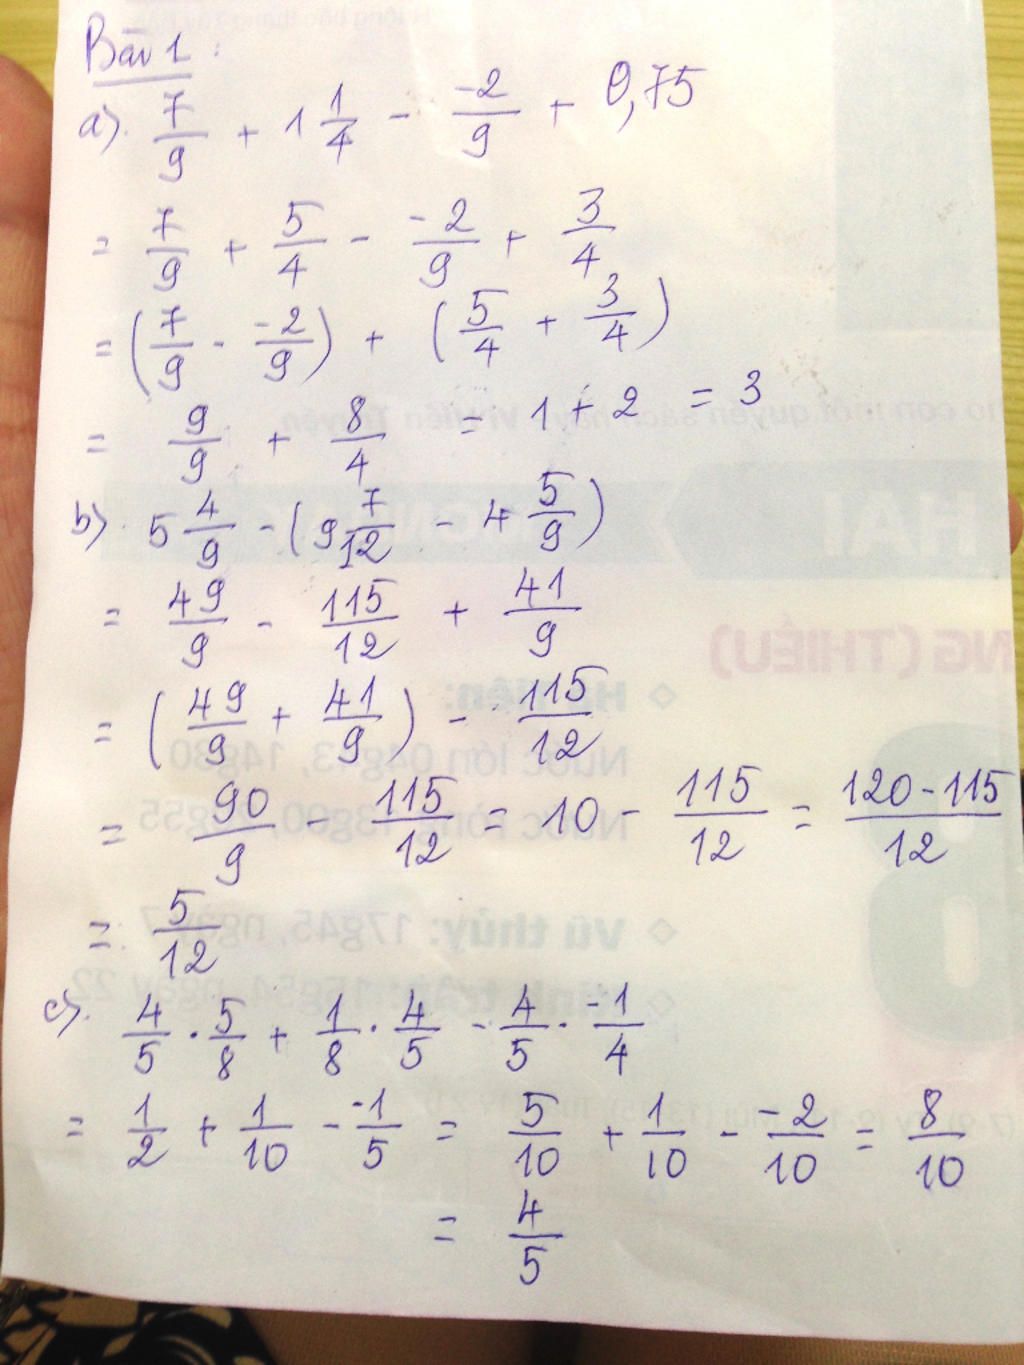 Bài 1:
a). 7/9 + 1 1/4 - -2/9 + 0,75
= 7/9 + 5/4 - -2/9 + 3/4
= (7/9 - -2/9) + (5/4 + 3/4)
= 9/9 + 8/4 = 1 + 2 = 3
b). 5 4/9 - (9 7/12 - 4 5/9)
= 49/9 - 115/12 + 41/9
= (49/9 + 41/9) - 115/12
= 90/9 - 115/12 = 10 - 115/12 = 120-115/12
= 5/12
c). 4/5 . 5/8 + 1/8 . 4/5 - 4/5 . -1/4
= 1/2 + 1/10 - -1/5 = 5/10 + 1/10 - -2/10 = 8/10
= 4/5